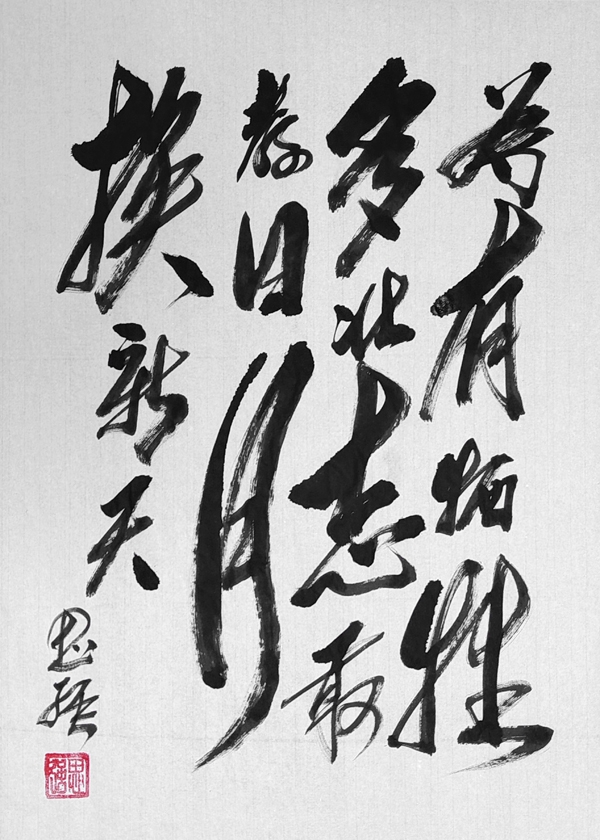 为有牺牲
多壮志敢
教日月
换新天